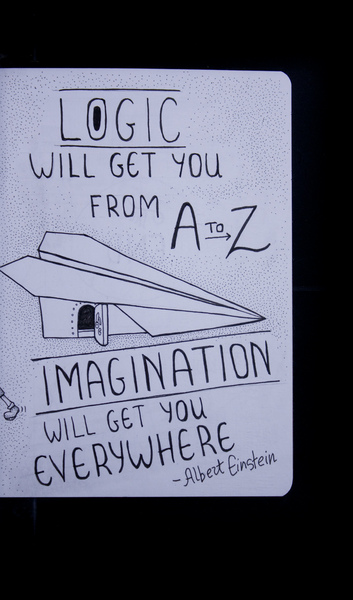 LOGIC
WILL GET YOU
FROM A TO Z
IMAGINATION
WILL GET YOU
EVERYWHERE
-Albert Einstein